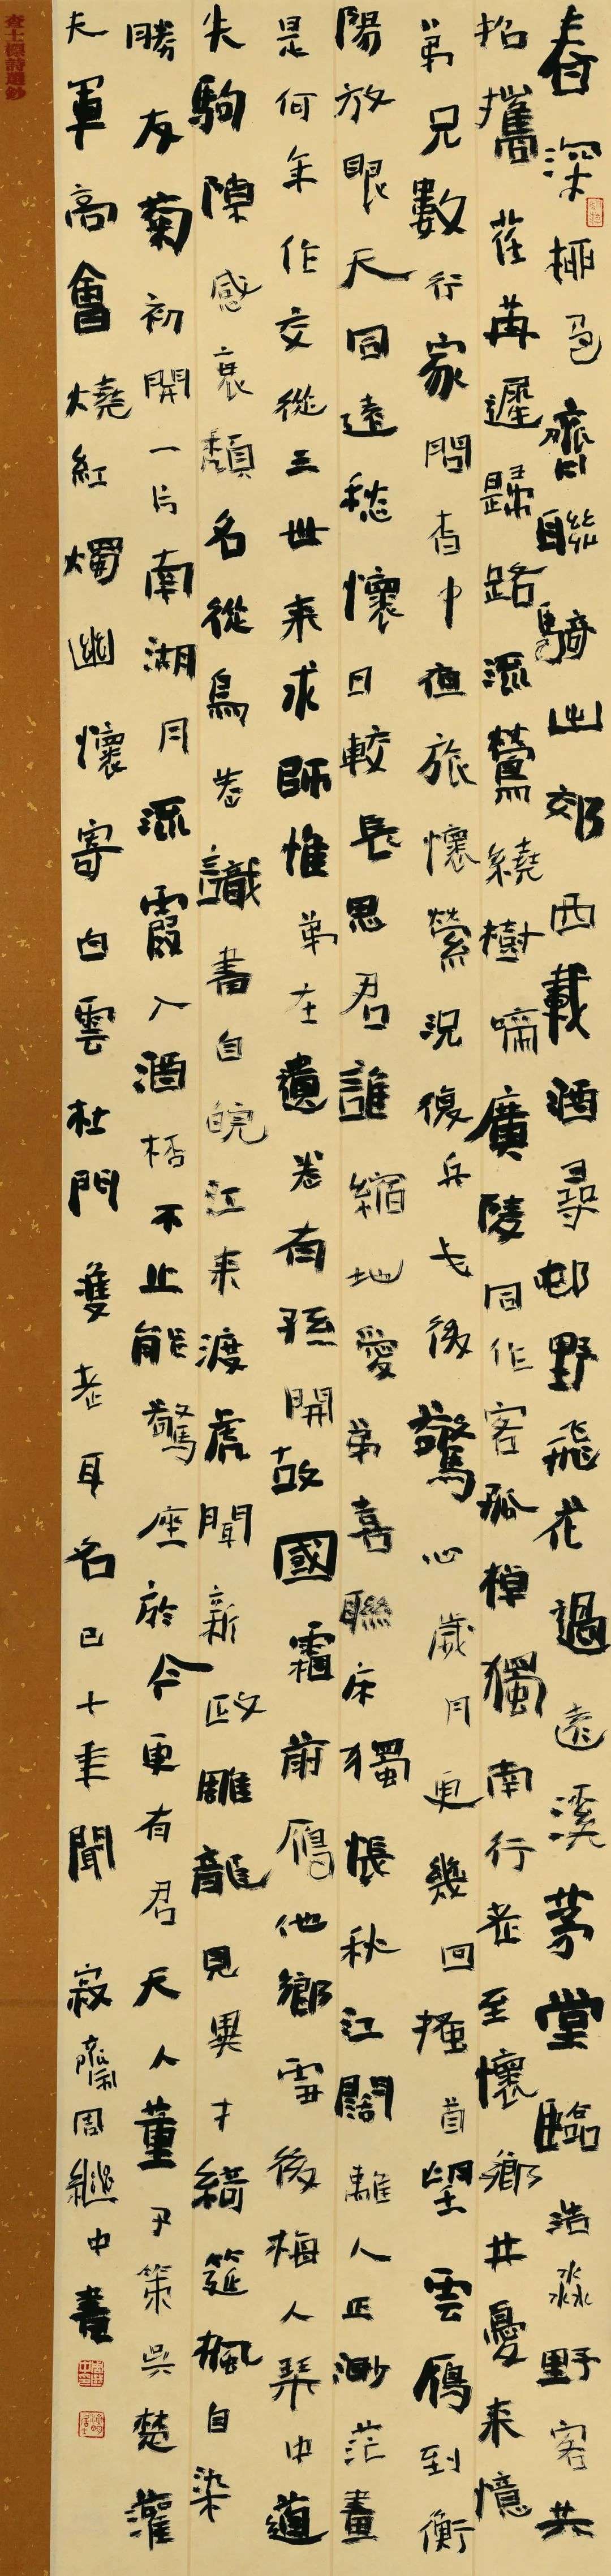 春深柳色齊聯騎出郊西載酒尋邨野飛花過遠溪茅堂臨浩淼野客共
招攜荏苒遲歸路流鶯繞樹啼廣陵同作客孤棹獨南行老至懷鄉井憂来憶
弟兄數行家問杳中夜旅懷縈況復兵戈後驚心歲月更幾回搔首望雲鴈到衡
陽放眼天同遠愁懷日較長思君誰縮地愛弟喜聯床獨悵秋江闊離人正渺茫畫
是何年作交從三世来求師惟弟在遺卷有孫開故國霜前鴈他鄉雪後梅人琴中道
失駒隙感衰頹名從烏巷識書自皖江来渡虎聞新政雕龍見異才綺筵楓自染
勝友菊初開一片南湖月流霞入酒桮不止能驚座於今更有君天人董尹策吳楚灌
夫軍高會燒紅燭幽懷寄白雲杜門雙老耳名已十年聞 寂齋周繼中書
查士標詩選鈔